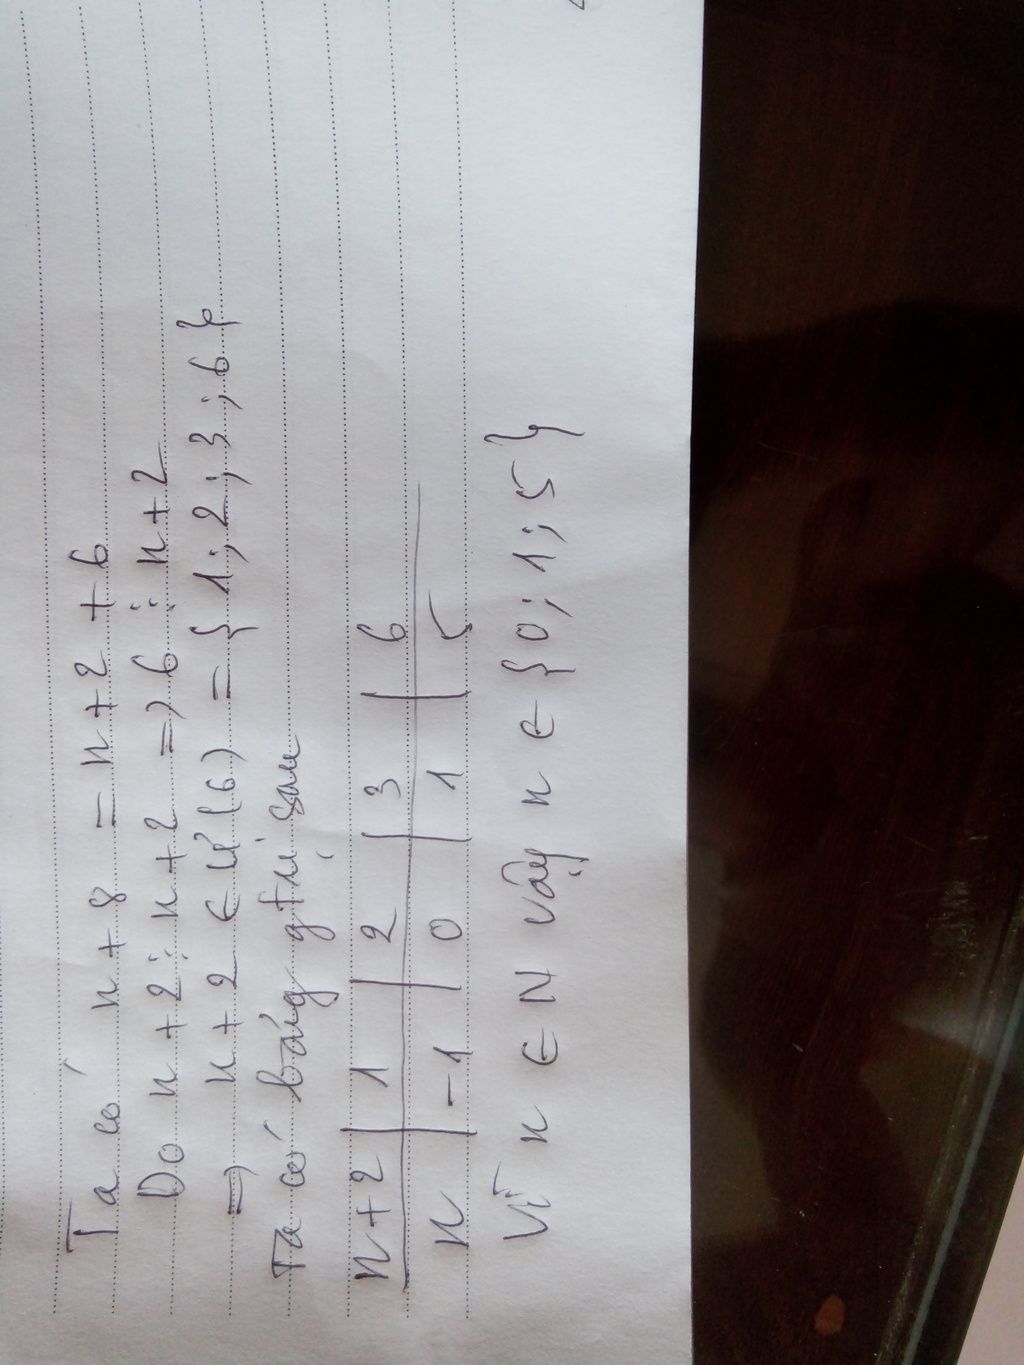 Ta có n + 8 = n + 2 + 6
Do n + 2 ⋮ n + 2 => 6 ⋮ n + 2
=> n + 2 ∈ Ư(6) = { 1 ; 2 ; 3 ; 6 }
Ta có bảng gtrị sau
n+2 | 1 | 2 | 3 | 6
n | -1 | 0 | 1 | 5
Vì n ∈ N vậy n ∈ { 0 ; 1 ; 5 }